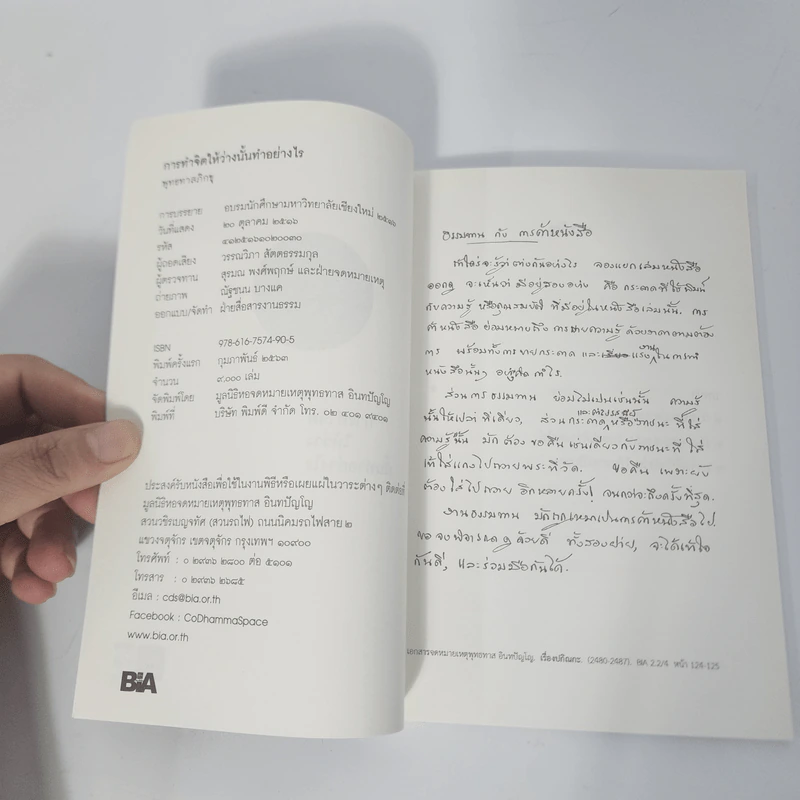 การทำจิตให้ว่างนั้นทำอย่างไร
พุทธทาสภิกขุ
การบรรยาย อบรมนักศึกษามหาวิทยาลัยเชียงใหม่ ๒๕๑๖
วันที่แสดง ๒๐ ตุลาคม ๒๕๑๖
รหัส ๔๑๒๕๑๖๑๐๒๐๐๓๐
ผู้ถอดเสียง วรรณวิภา สัตตธรรมกุล
ผู้ตรวจทาน สุรมณ พงศ์พฤกษ์ และฝ่ายจดหมายเหตุ
ถ่ายภาพ ณัฐชนน บางแค
ออกแบบ/จัดทำ ฝ่ายสื่อสารงานธรรม
ISBN 978-616-7574-90-5
พิมพ์ครั้งแรก กุมภาพันธ์ ๒๕๖๓
จำนวน ๙,๐๐๐ เล่ม
จัดพิมพ์โดย มูลนิธิหอจดหมายเหตุพุทธทาส อินทปัญโญ
พิมพ์ที่ บริษัท พิมพ์ดี จำกัด โทร. ๐๒ ๔๐๑ ๙๔๐๑
ประสงค์รับหนังสือเพื่อใช้ในงานพิธีหรือเผยแผ่ในวาระต่างๆ ติดต่อที่
มูลนิธิหอจดหมายเหตุพุทธทาส อินทปัญโญ
สวนวชิรเบญจทัศ (สวนรถไฟ) ถนนนิคมรถไฟสาย ๒
แขวงจตุจักร เขตจตุจักร กรุงเทพฯ ๑๐๙๐๐
โทรศัพท์ : ๐ ๒๙๓๖ ๒๘๐๐ ต่อ ๕๑๐๑
โทรสาร : ๐ ๒๙๓๖ ๒๖๘๕
อีเมล : cds@bia.or.th
Facebook : CoDhammaSpace
www.bia.or.th
BIA
ธรรมทาน กับ การค้าหนังสือ
ถ้าใคร่จะรู้ว่าต่างกันอย่างไร ลองแยกเล่มหนังสือ
ออกดู จะเห็นว่า มีอยู่สองอย่าง คือ กระดาษที่ใช้พิมพ์
กับความรู้ หรือคุณสมบัติ ที่มีอยู่ในหนังสือเล่มนั้น. การ
ค้าหนังสือ ย่อมหมายถึง การขายความรู้ ด้วยราคาตามต้อง
การ พร้อมทั้งการขายกระดาษ และแรงงานในการทำ
หนังสือนั้นๆ อย่างได้กำไร.
ส่วนการธรรมทาน ย่อมไม่เป็นเช่นนั้น ความรู้
นั้นให้เปล่าทีเดียว, ส่วนกระดาษและค่าแรง หรือภาชนะ ที่ใส่
ความรู้นั้น มักต้องขอคืน เช่นเดียวกับภาชนะที่ใส่
เข้าใส่แกงไปถวายพระที่วัด. ขอคืน เพราะยัง
ต้องใส่ไปถวาย อีกหลายครั้ง, จนกว่าจะถึงครั้งที่สุด.
งานธรรมทาน มักถูกเหมาเป็นการค้าหนังสือไป.
ขอจงพิจารณาดูด้วยดี ทั้งสองฝ่าย, จะได้เข้าใจ
กันดี, และร่วมมือกันได้.
เอกสารจดหมายเหตุพุทธทาส อินทปัญโญ. เรื่องปกิณกะ. (2480-2487). BIA 2.2/4 หน้า 124-125